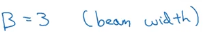 B = 3 (beam width)